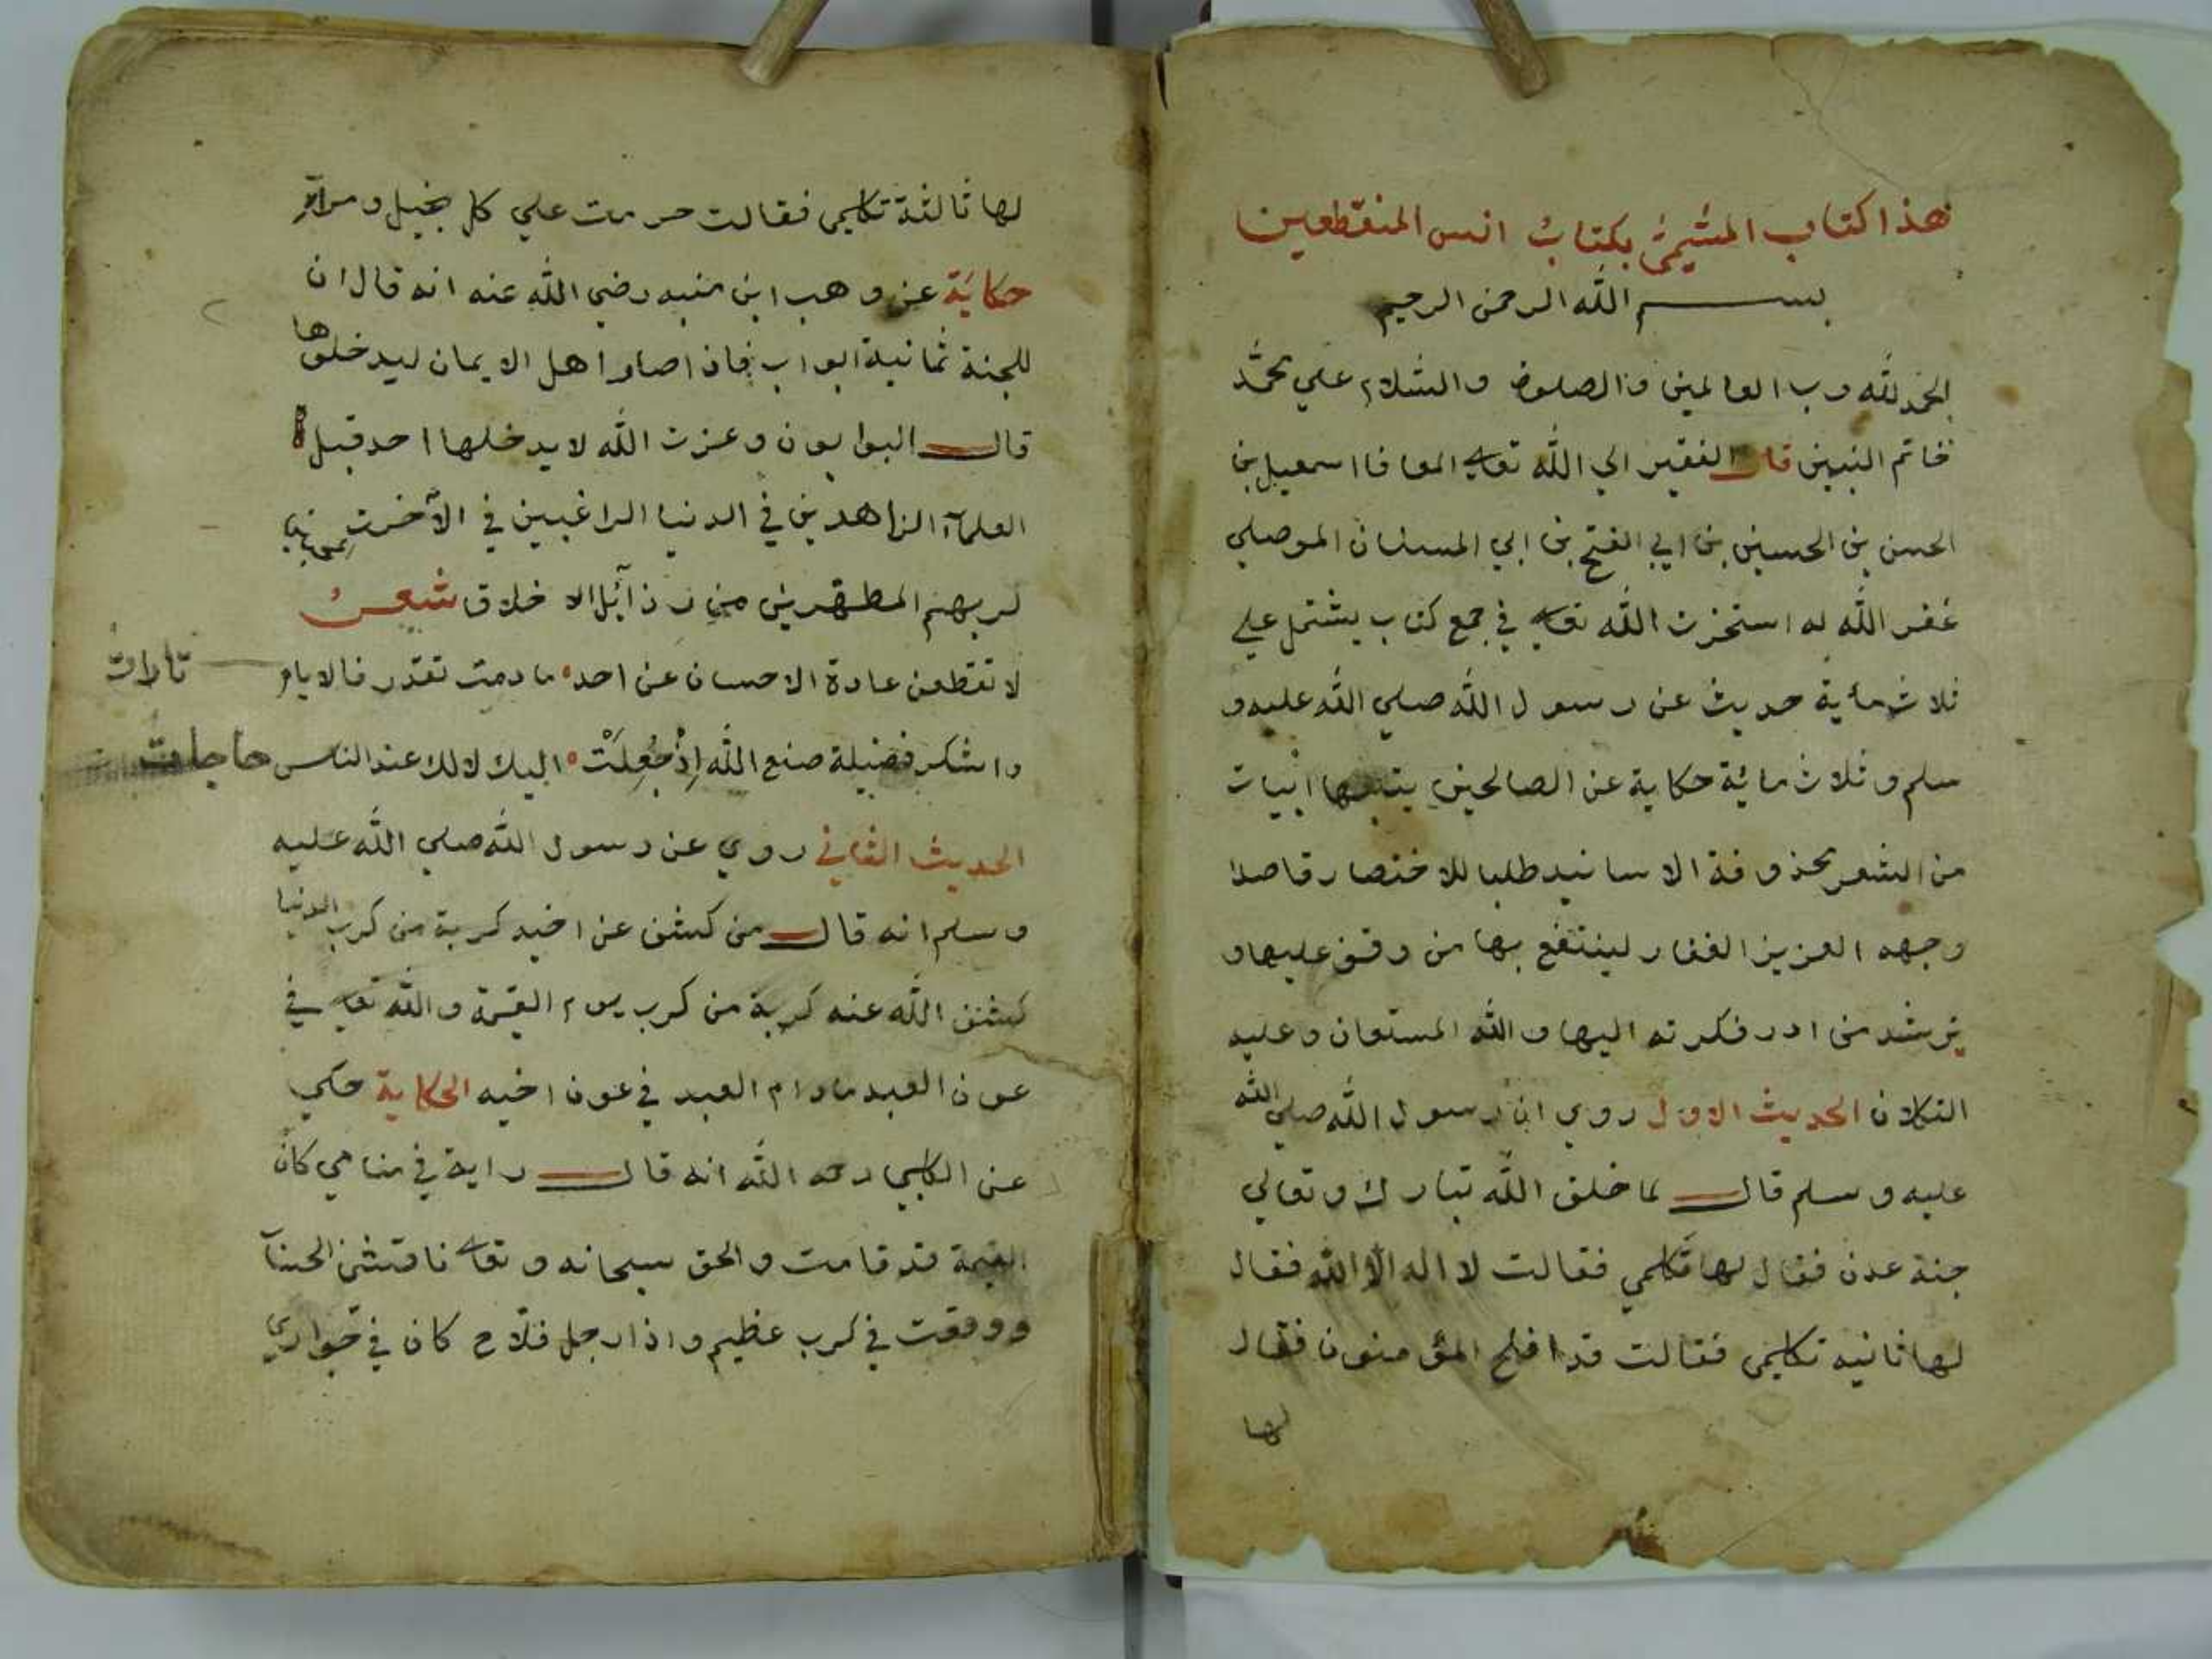 هذا كتاب المسمى بكتاب انس المنقطعين
بسم الله الرحمن الرحيم
الحمد لله رب العالمين والصلوة والسلام علي محمد
خاتم النبيين قال الفقير الي الله تعالي المعافا اسمعيل بن
الحسن بن الحسين بن ابي الفتح بن ابي السنان الموصلي
غفر الله له استخرت الله تعالي في جمع كتاب يشتمل علي
ثلاث مأية حديث عن رسول الله صلي الله عليه و
سلم و ثلاث مائة حكاية عن الصالحين يتبعها ابيات
من الشعر محذوفة الاسانيد طلبا للاختصار قاصدا
وجهه العزيز الغفار لينتفع بها من وقف عليها و
يرشد من ادر فكرته اليها والله المستعان وعليه
التكلان الحديث الاول روي ان رسول الله صلي الله
عليه وسلم قال لما خلق الله تبارك وتعالي
جنة عدن فقال لها تكلمي فقالت لا اله الا الله فقال
لها ثانيه تكلمي فقالت قد افلح المؤمنون فقال
لها
لها ثالثة تكلمي فقالت حرمت علي كل بخيل و مراي
حكاية عن وهب ابن منبه رضي الله عنه انه قال ان
للجنة ثمانية ابواب فاذا صاروا اهل الايمان ليدخلوها
قال البوابون وعزت الله لا يدخلها احد قبل
العلمآء الزاهدين في الدنيا الراغبين في الآخرت
لربهم المطهرين من رذآئل الاخلاق شعر
لا تقطعن عادة الاحسان عن احد ما دمت تقدر فالايام تارات
واشكر فضيلة صنع الله اذ جعلت اليك لا لك عند الناس حاجات
الحديث الثاني روي عن رسول الله صلي الله عليه
وسلم انه قال من كشف عن اخيه كربة من كرب الدنيا
كشف الله عنه كربة من كرب يوم القيمة والله تعالي في
عون العبد مادام العبد في عون اخيه الحكاية حكي
عن الكلبي رحمه الله انه قال راية في منامي كان
القيمة قد قامت والحق سبحانه وتعالي ناقشني الحساب
ووقعت في كرب عظيم واذا رجل فلاح كان في جواري